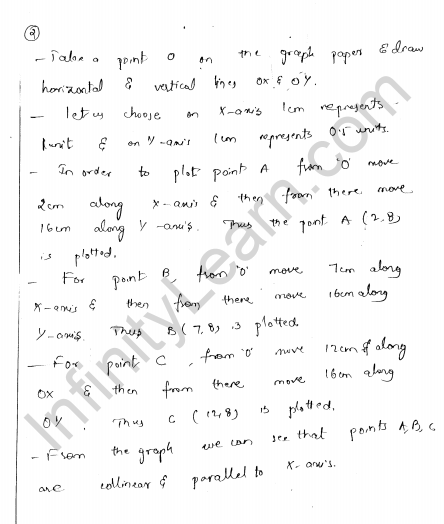 ②
- Take a point O on the graph paper & draw
horizontal & vertical lines OX & OY.
- let us choose on X-axis 1cm represents
1unit & on Y-axis 1cm represents 0.5 units.
- In order to plot point A from 'O' move
2cm along X-axis & then from there move
16cm along Y-axis. Thus the point A (2,8)
is plotted.
- For point B, from 'O' move 7cm along
X-axis & then from there move 16cm along
Y-axis. Thus B(7,8) is plotted.
- For point C, from 'O' move 12cm along
OX & then from there move 16cm along
OY. Thus C (12,8) is plotted.
- From the graph we can see that points A,B,C
are collinear & parallel to X-axis.
InfinityLearn.com